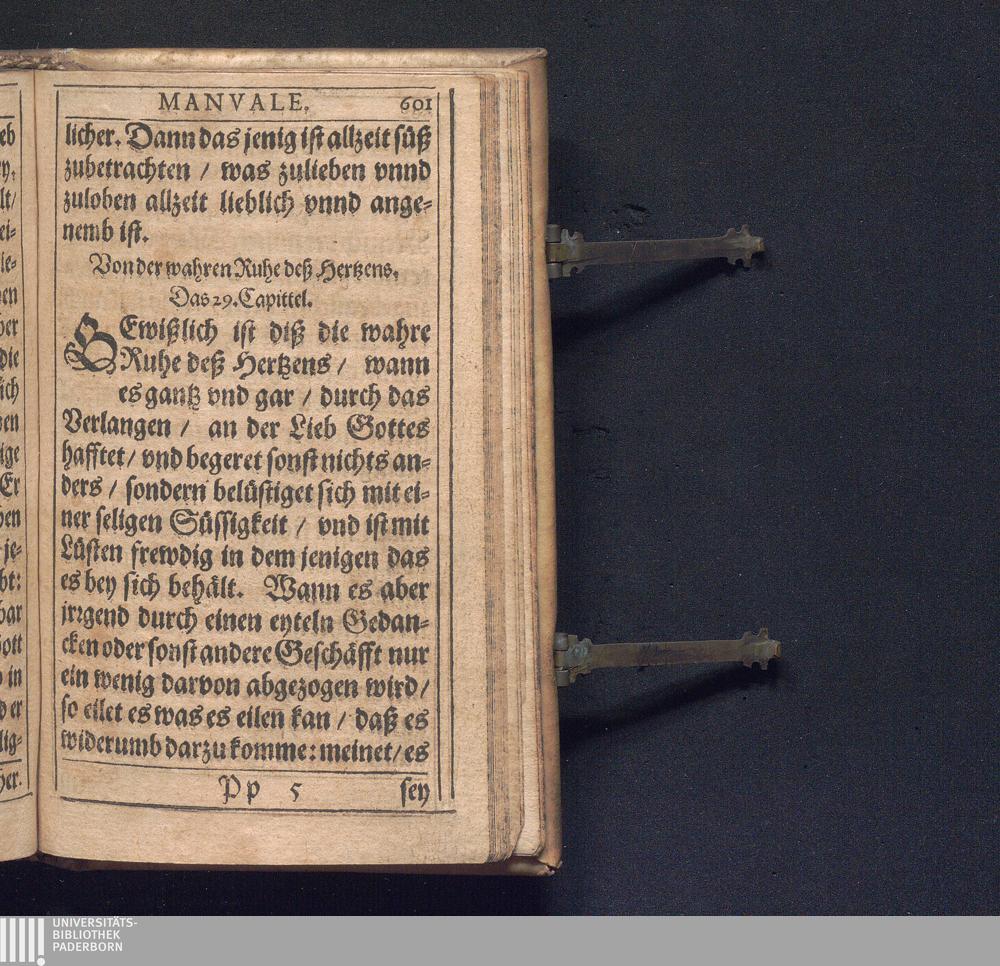 MANVALE. 601
licher. Dann das jenig ist allzeit süß
zubetrachten / was zulieben vnnd
zuloben allzeit lieblich vnnd ange-
nemb ist.
Von der wahren Ruhe deß Hertzens.
Das 29. Capittel.
GEwißlich ist diß die wahre
Ruhe deß Hertzens / wann
es gantz vnd gar / durch das
Verlangen / an der Lieb Gottes
hafftet / vnd begeret sonst nichts an-
ders / sondern belüstiget sich mit ei-
ner seligen Süssigkeit / vnd ist mit
Lüsten frewdig in dem jenigen das
es bey sich behält. Wann es aber
jrrgend durch einen eyteln Gedan-
cken oder sonst andere Geschäfft nur
ein wenig darvon abgezogen wird /
so eilet es was es eilen kan / daß es
widerumb darzu komme: meinet / es
Pp 5 sey
UNIVERSITÄTS-
BIBLIOTHEK
PADERBORN